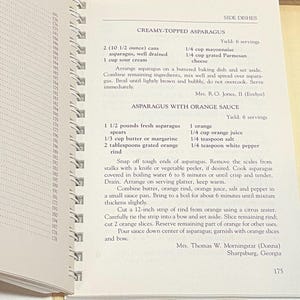 SIDE DISHES
CREAMY-TOPPED ASPARAGUS
Yield: 6 servings
2 (10 1/2 ounce) cans
asparagus, well drained
1 cup sour cream
1/4 cup mayonnaise
1/4 cup grated Parmesan
cheese
Arrange asparagus on a buttered baking dish and set aside.
Combine remaining ingredients, mix well and spread over aspara-
gus. Broil until lightly brown and bubbly, do not overcook. Serve
immediately.
Mrs. P.O. Jones, II (Evelyn)
ASPARAGUS WITH ORANGE SAUCE
Yield: 6 servings
1 1/2 pounds fresh asparagus
spears
1/3 cup butter or margarine
2 tablespoons grated orange
rind
1 orange
1/4 cup orange juice
1/4 teaspoon salt
1/4 teaspoon white pepper
Snap off tough ends of asparagus. Remove the scales from
stalks with a knife or vegetable peeler, if desired. Cook asparagus
covered in boiling water 6 to 8 minutes or until crisp and tender.
Drain. Arrange on serving platter, keep warm.
Combine butter, orange rind, orange juice, salt and pepper in
a small sauce pan. Bring to a boil for about 6 minutes until mixture
thickens slightly.
Cut a 12-inch strip of rind from orange using a citrus water.
Carefully tie the strip into a bow and set aside. Slice remaining rind;
cut 2 orange slices. Reserve remaining part of orange for other uses.
Pour sauce down center of asparagus; garnish with orange slices
and bow.
Mrs. Thomas W. Morningstar (Donna)
Sharpsburg, Georgia
175